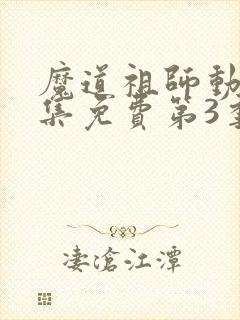 魔道祖師動
集免費第3季
淒滄江潭